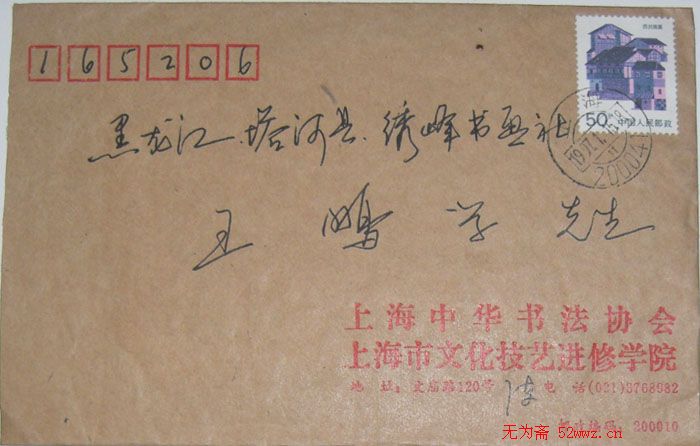 165206
50 中国人民邮政
黑龙江.塔河县.绣峰书画社
王鹏学先生
上海中华书法协会
上海市文化技艺进修学院
地 址：文庙路120号 陆 电 话(021)3768982
邮政编码：200010
无为斋 52wwz.cn